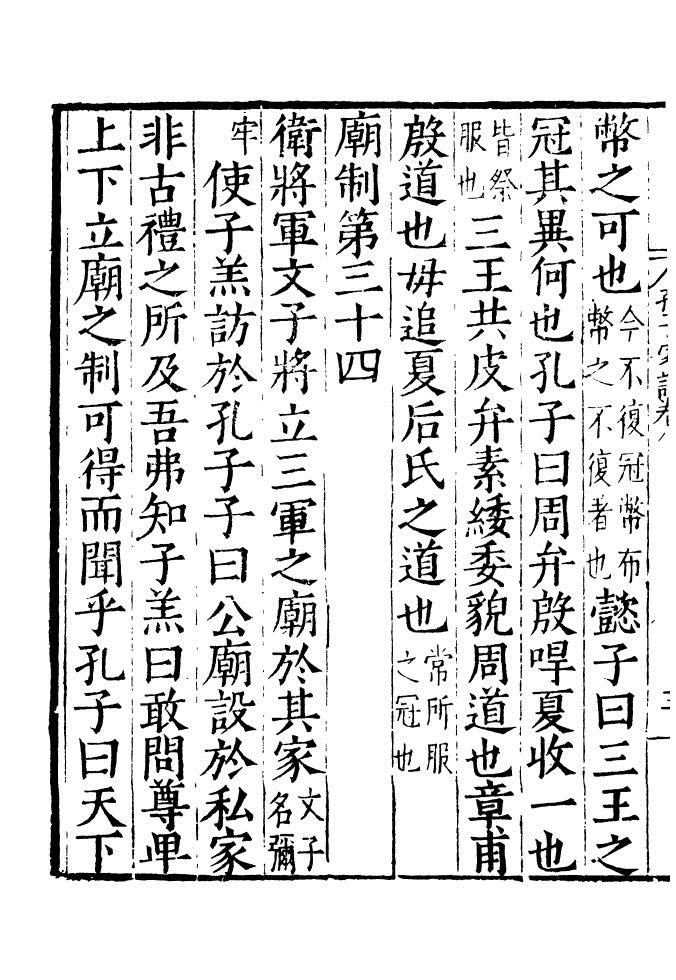 幣之可也今不復冠幣布幣之不復者也懿子曰三王之
冠其異何也孔子曰周弁殷哻夏收一也
皆祭服也三王共皮弁素緌委貌周道也章甫
殷道也毋追夏后氏之道也常所服之冠也
廟制第三十四
衛將軍文子將立三軍之廟於其家文子名彌
牢使子羔訪於孔子子曰公廟設於私家
非古禮之所及吾弗知子羔曰敢問尊卑
上下立廟之制可得而聞乎孔子曰天下